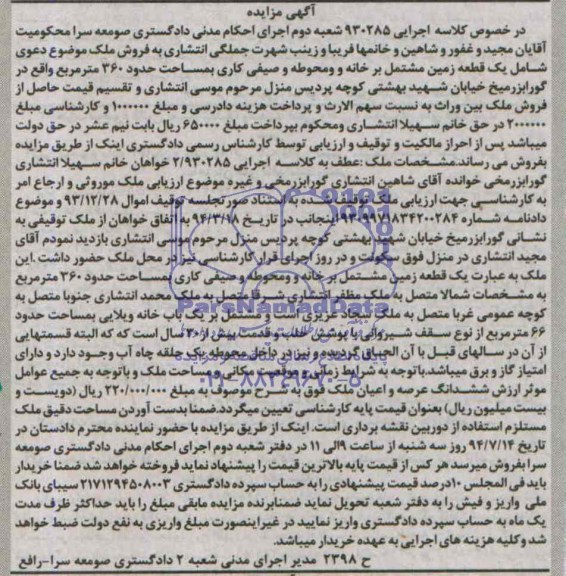 آگهی مزایده
در خصوص کلاسه اجرایی ۹۳۰۲۸۵ شعبه دوم اجرای احکام مدنی دادگستری صومعه سرا محکومیت
آقایان مجید و غفور و شاهین و خانمها فریبا و زینب شهرت جملگی انتشاری به فروش ملک موضوع دعوی
شامل یک قطعه زمین مشتمل بر خانه و محوطه و صیفی کاری بمساحت حدود ۳۶۰ مترمربع واقع در
گورابزرمیخ خیابان شهید بهشتی کوچه پردیس منزل مرحوم موسی انتشاری و تقسیم قیمت حاصل از
فروش ملک بین وراث به نسبت سهم الارث و پرداخت هزینه دادرسی و مبلغ ۱۰۰۰۰۰۰ و کارشناسی مبلغ
۲۰۰۰۰۰۰ در حق خانم سهیلا انتشاری ومحکوم بپرداخت مبلغ ۶۵۰۰۰۰ ریال بابت نیم عشر در حق دولت
میباشد پس از احراز مالکیت و توقیف و ارزیابی توسط کارشناس رسمی دادگستری اینک از طریق مزایده
بفروش می رساند.مشخصات ملک :عطف به کلاسه اجرایی ۲/۹۳۰۲۸۵ خواهان خانم سهیلا انتشاری
گورابزرمخی خوانده آقای شاهین انتشاری گورابزرمخی و غیره موضوع ارزیابی ملک موروثی و ارجاع امر
به کارشناسی جهت ارزیابی ملک توقیف شده به استناد صورتجلسه توقیف اموال ۹۳/۱۲/۲۸ و موضوع
دادنامه شماره ۹۳۰۹۹۷۱۸۳۴۲۰۰۲۸۴ اینجانب در تاریخ ۹۴/۳/۱۸ به اتفاق خواهان از ملک توقیفی به
نشانی گورابزرمیخ خیابان شهید بهشتی کوچه پردیس منزل مرحوم موسی انتشاری بازدید نمودم آقای
مجید انتشاری در منزل فوق سکونت و در روز اجرای قرار کارشناسی نیز در محل ملک حضور داشت .این
ملک به عبارت یک قطعه زمین مشتمل بر خانه و ومحوطه و صیفی کاری بمساحت حدود ۳۶۰ مترمربع
به مشخصات شمالا متصل به ملک مظفر انتشاری شرقا متصل به ملک محمد انتشاری جنوبا متصل به
کوچه عمومی غربا متصل به ملک سجاد عزیزی است و مشتمل بر یک باب خانه ویلایی بمساحت حدود
۶۶ مترمربع از نوع سقف شیروانی با پوشش حلب و قدمت بیش از ۳۰ سال است که که البته قسمتهایی
از آن در سالهای قبل با آن الحاق گردیده و نیز در داخل محوطه یک حلقه چاه آب وجود دارد و دارای
امتیاز گاز و برق میباشد.باتوجه به شرایط زمانی و موقعیت مکانی و مساحت ملک و باتوجه به جمیع عوامل
موثر ارزش ششدانگ عرصه و اعیان ملک فوق به شرح موصوف به مبلغ ۲۲۰/۰۰۰/۰۰۰ ریال (دویست و
بیست میلیون ریال) بعنوان قیمت پایه کارشناسی تعیین میگردد.ضمنا بدست آوردن مساحت دقیق ملک
مستلزم استفاده از دوربین نقشه برداری است. اینک از طریق مزایده با حضور نماینده محترم دادستان در
تاریخ ۹۴/۷/۱۴ روز سه شنبه از ساعت ۹الی ۱۱ در دفتر شعبه دوم اجرای احکام مدنی دادگستری صومعه
سرا بفروش میرسد هر کس از قیمت پایه بالاترین قیمت را پیشنهاد نماید فروخته خواهد شد ضمنا خریدار
باید فی المجلس ۱۰درصد قیمت پیشنهادی را به حساب سپرده دادگستری ۲۱۷۱۲۹۴۵۰۸۰۰۳ سیبای بانک
ملی واریز و فیش را به دفتر شعبه تحویل نماید ضمنابرنده مزایده مابقی مبلغ را باید حداکثر ظرف مدت
یک ماه به حساب سپرده دادگستری واریز نمایید در غیراینصورت مبلغ واریزی به نفع دولت ضبط خواهد
شد وکلیه هزینه های اجرایی به عهده خریدار میباشد.
ح ۲۳۹۸ مدیر اجرای مدنی شعبه ۲ دادگستری صومعه سرا-رافع
ParsNamadData
۰۲۱-۸۸۳۴۹۶۷۰-۵